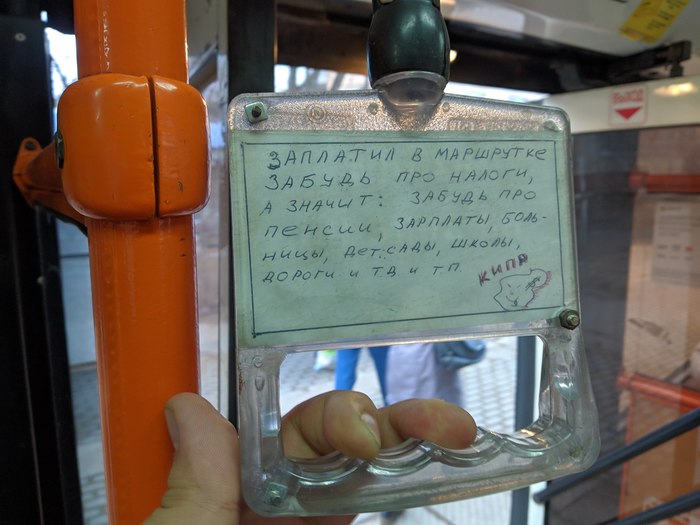 ВЫХОД
ЗАПЛАТИЛ В МАРШРУТКЕ
ЗАБУДЬ ПРО НАЛОГИ,
А ЗНАЧИТ: ЗАБУДЬ ПРО
ПЕНСИИ, ЗАРПЛАТЫ, БОЛЬ-
НИЦЫ, ДЕТ.САДЫ, ШКОЛЫ,
ДОРОГИ И ТД И ТП.
КИПР